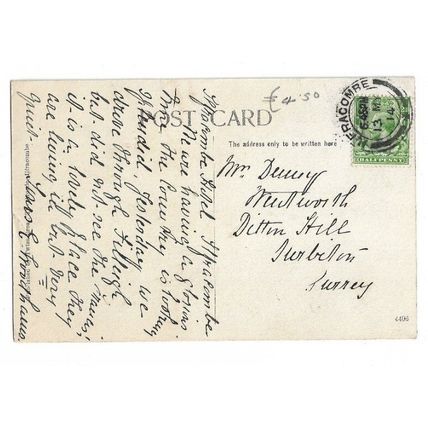 £4.50
POST CARD
The address only to be written here
ILFRACOMBE
13 MY
14
HALFPENNY
Mr Denny
Wentworth
Ditton Hill
Surbiton
Surrey
4406
Ilfracombe Hotel Ilfracombe
We are having a glorious
time the Country is looking
splendid, yesterday we
drove through
but did not see the
it is a lovely place they
are living in but very
quiet